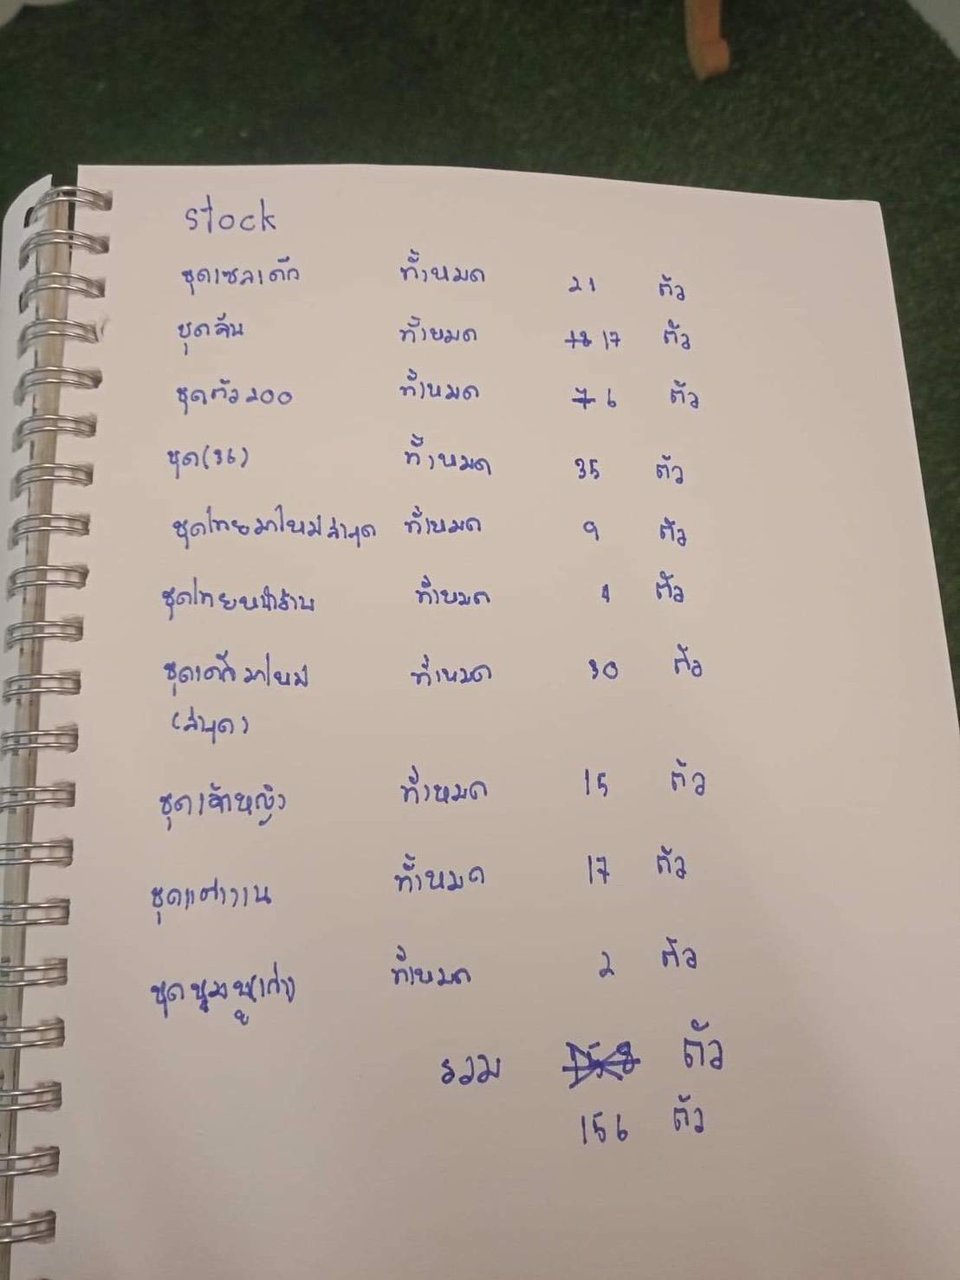 stock
ชุดเซลเด็ก ทั้งหมด 21 ตัว
ชุดจีน ทั้งหมด 18 17 ตัว
ชุดตัว 200 ทั้งหมด 7 6 ตัว
ชุด(36) ทั้งหมด 35 ตัว
ชุดไทยมาใหม่ล่าสุด ทั้งหมด 9 ตัว
ชุดไทยหน้าร้าน ทั้งหมด 4 ตัว
ชุดเด็กมาใหม่ ทั้งหมด 30 ตัว
(ล่าสุด)
ชุดเจ้าหญิง ทั้งหมด 15 ตัว
ชุดแต่งงาน ทั้งหมด 17 ตัว
ชุด ทั้งหมด 2 ตัว
รวม 158 ตัว
156 ตัว